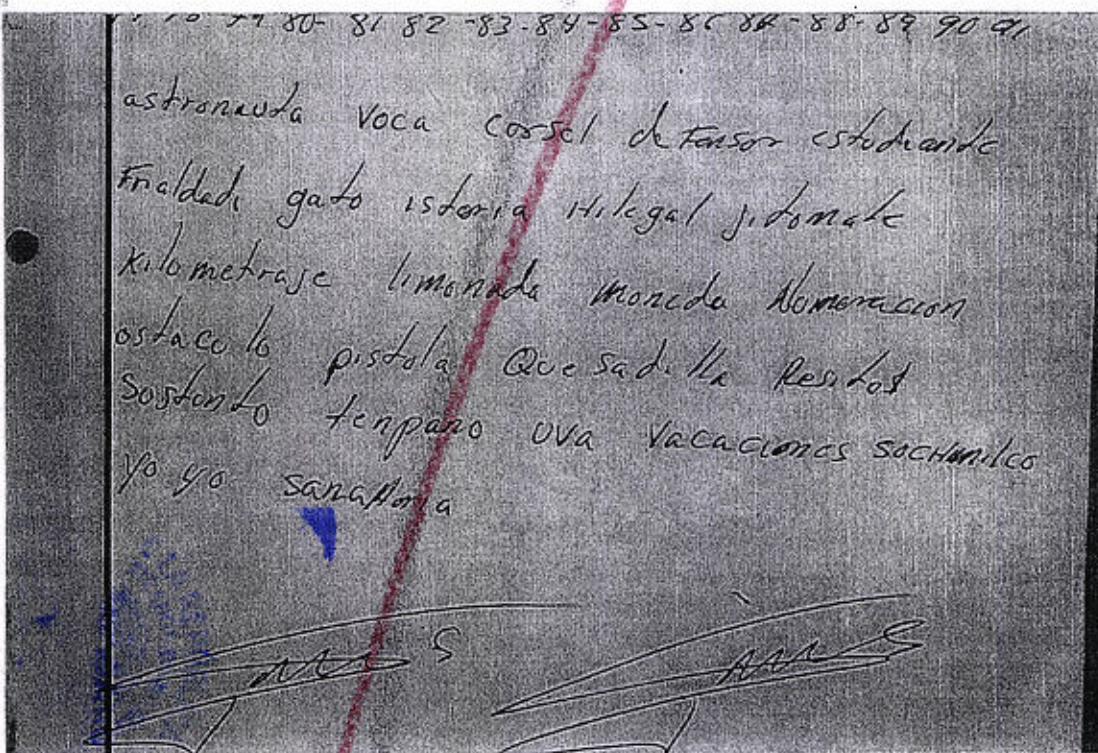 79 80- 81 82 -83-84-85-86 87-88-89 90 91
astronauta voca corsel defensor estudiante
Frialdad gato istoria ilegal jitomate
Kilometraje limonada moneda Numeracion
ostaculo pistola Quesadilla
tenpano uva vacaciones sochimilco
yo yo sanahoria